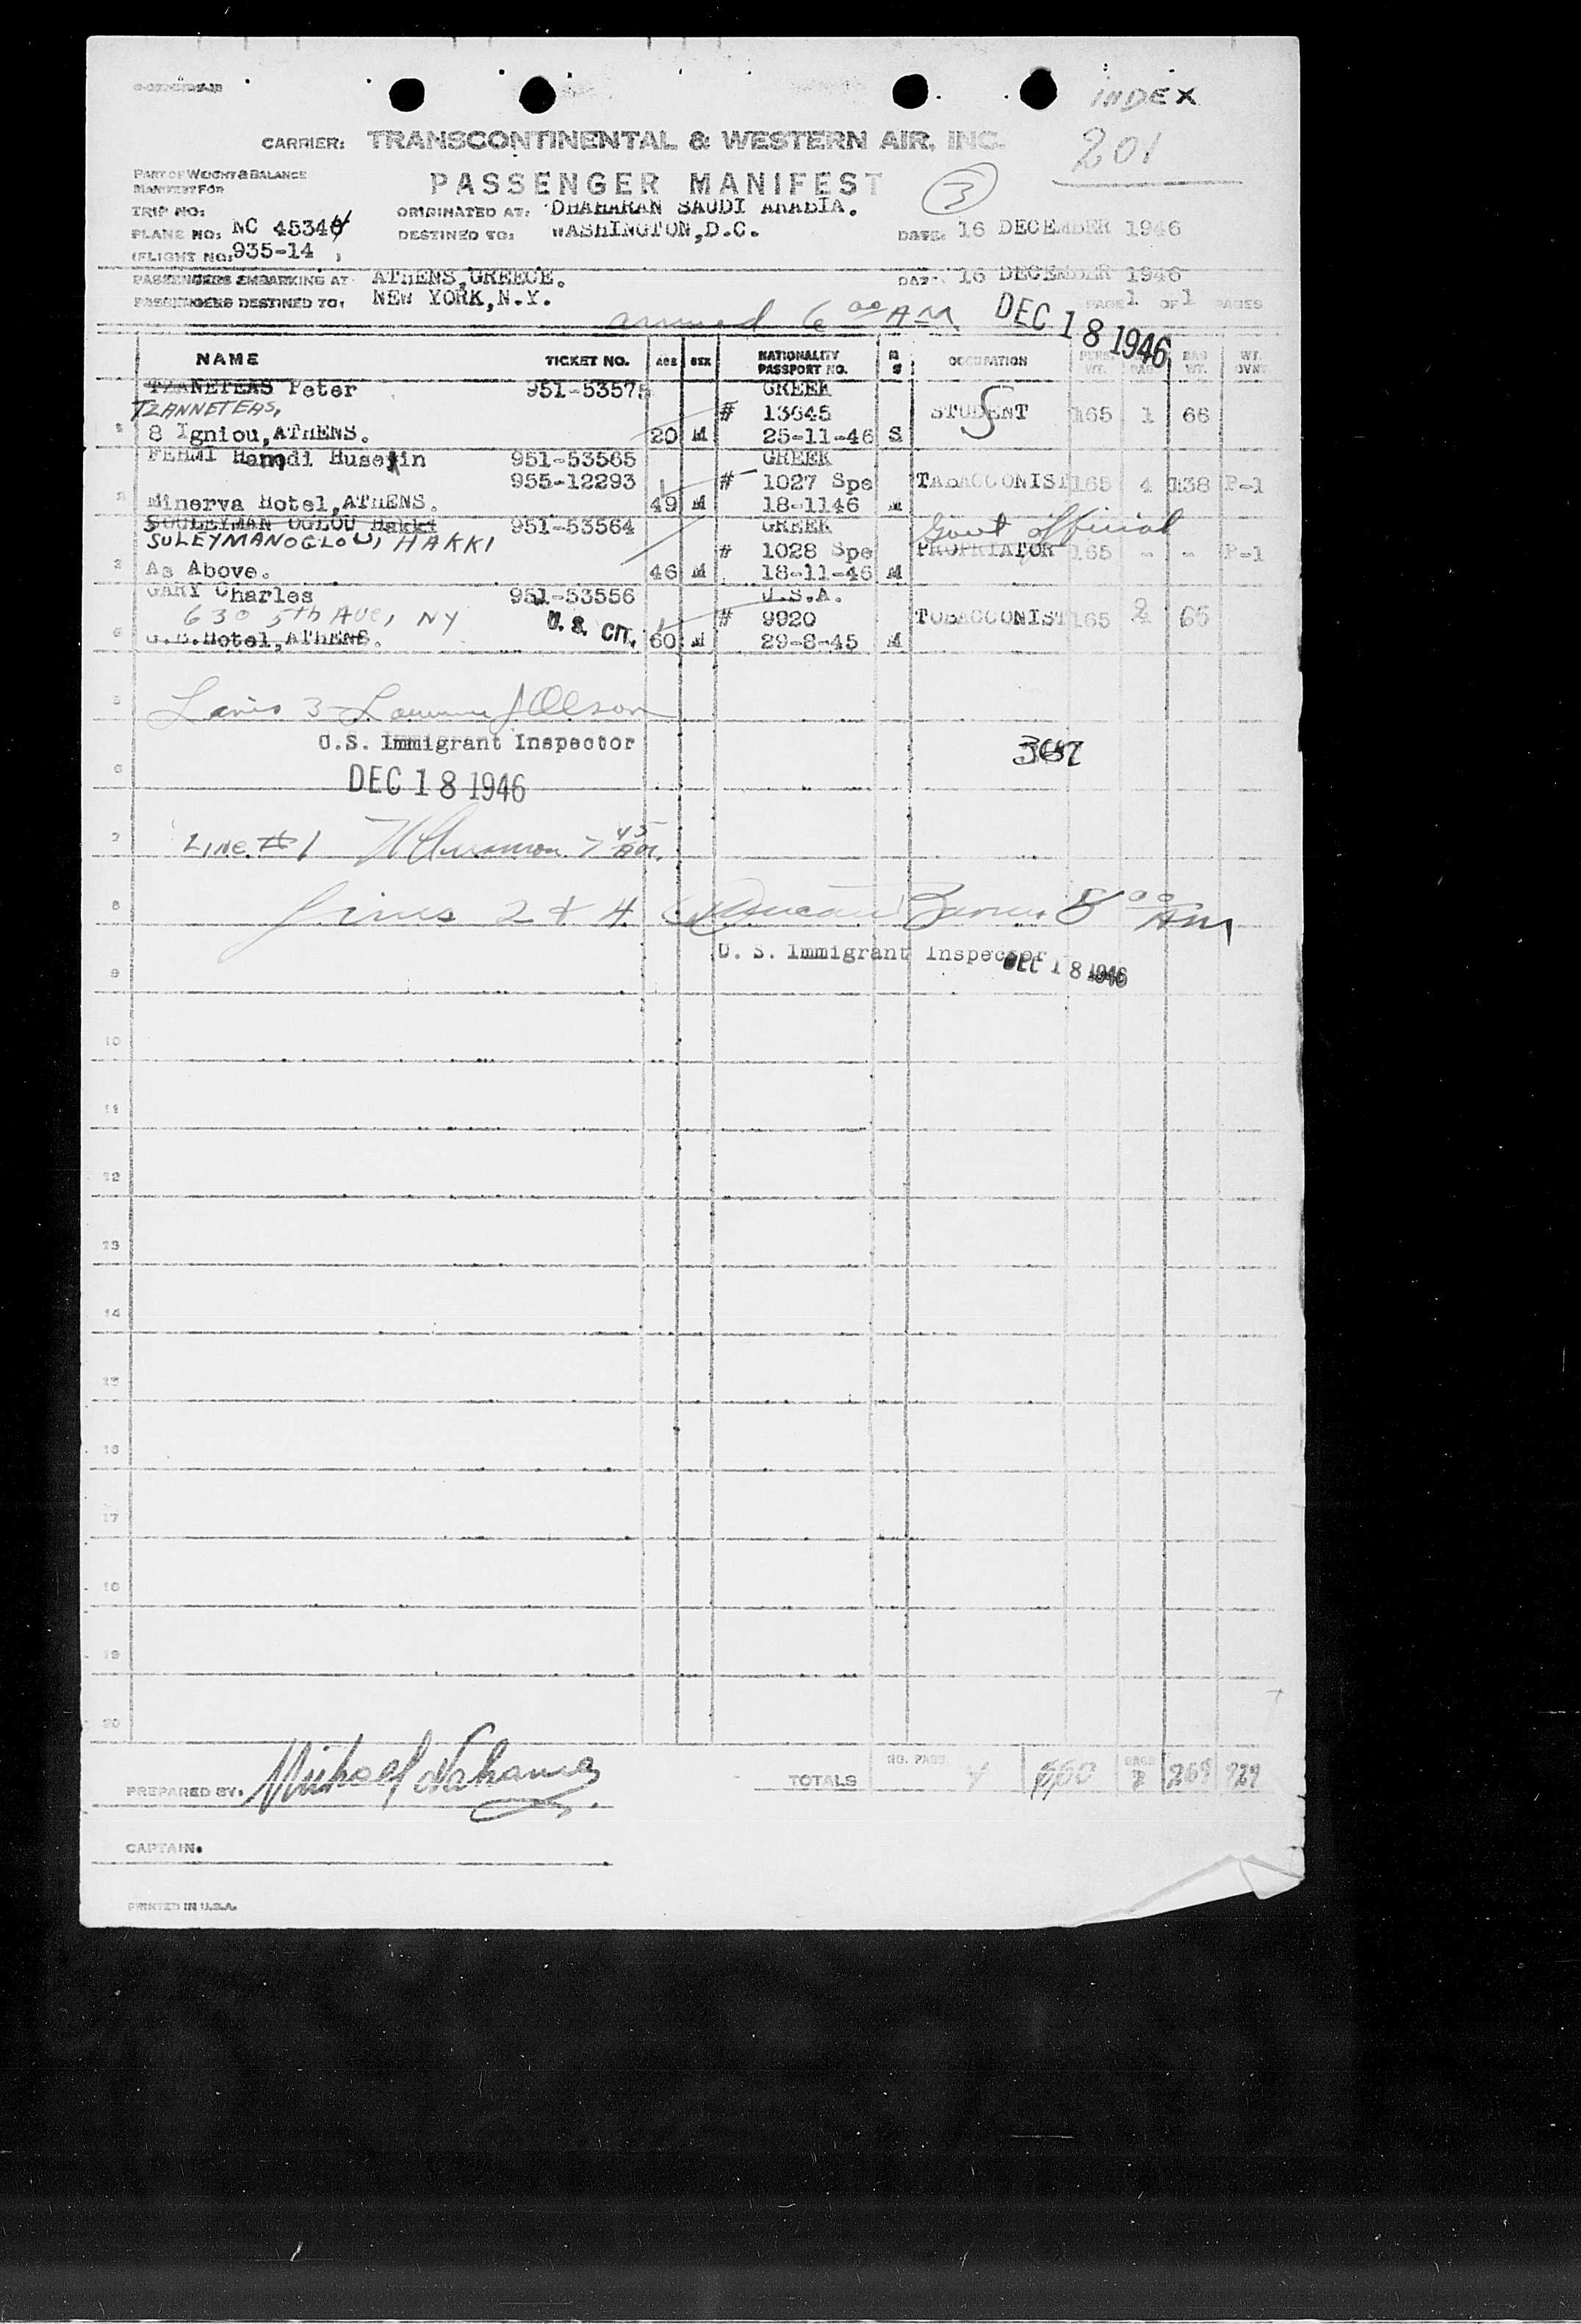 INDEX
CARRIER: TRANSCONTINENTAL & WESTERN AIR, INC.
201
PART OF WEIGHT & BALANCE
MANIFEST FOR
PASSENGER MANIFEST
3
TRIP NO:
ORIGINATED AT: DHAHARAN SAUDI ARABIA.
PLANE NO: NC 45344
DESTINED TO: WASHINGTON,D.C.
DATE: 16 DECEMBER 1946
(FLIGHT NO: 935-14 )
PASSENGERS EMBARKING AT ATHENS,GREECE.
DATE: 16 DECEMBER 1946
PASSENGERS DESTINED TO: NEW YORK,N.Y.
PAGE 1 OF 1 PAGES
arrived 6 00 AM DEC 18 1946
NAME TICKET NO. AGE SEX NATIONALITY PASSPORT NO. M S OCCUPATION PERS. WT. BAG. BAG WT. WT. OVN
TZANETEAS Peter 951-53575 GREEK
TZANNETEAS, # 13645 STUDENT S 165 1 66
1 8 Igniou,ATHENS. 20 M 25-11-46 S
FEHMI Hamdi Husejin 951-53565 GREEK
955-12293 # 1027 Spe TABACCONIST 165 4 138 P-1
2 Minerva Hotel,ATHENS. 49 M 18-1146 M
SOULEYMAN OGLOU Hakki 951-53564 GREEK Govt official
SULEYMANOGLOU, HAKKI # 1028 Spe PROPRIATOR 165 - - P-1
3 As Above. 46 M 18-11-46 M
GARY Charles 951-53556 U.S.A.
630 5th Ave, NY U.S. CIT. # 9920 TOBACCONIST 165 2 65
G.B.Hotel,ATHENS. 60 M 29-8-45 M
5 3 Olson
U.S. Immigrant Inspector
6 DEC 18 1946
7 LINE #1 7 45 AM.
8 Lines 2 & 4 8 00 AM
U. S. Immigrant Inspector
DEC 18 1946
9
10
11
12
13
14
15
16
17
18
19
20
PREPARED BY.
TOTALS NO. PASS. 4 660 BAGS 7 269 929
CAPTAIN.
PRINTED IN U.S.A.